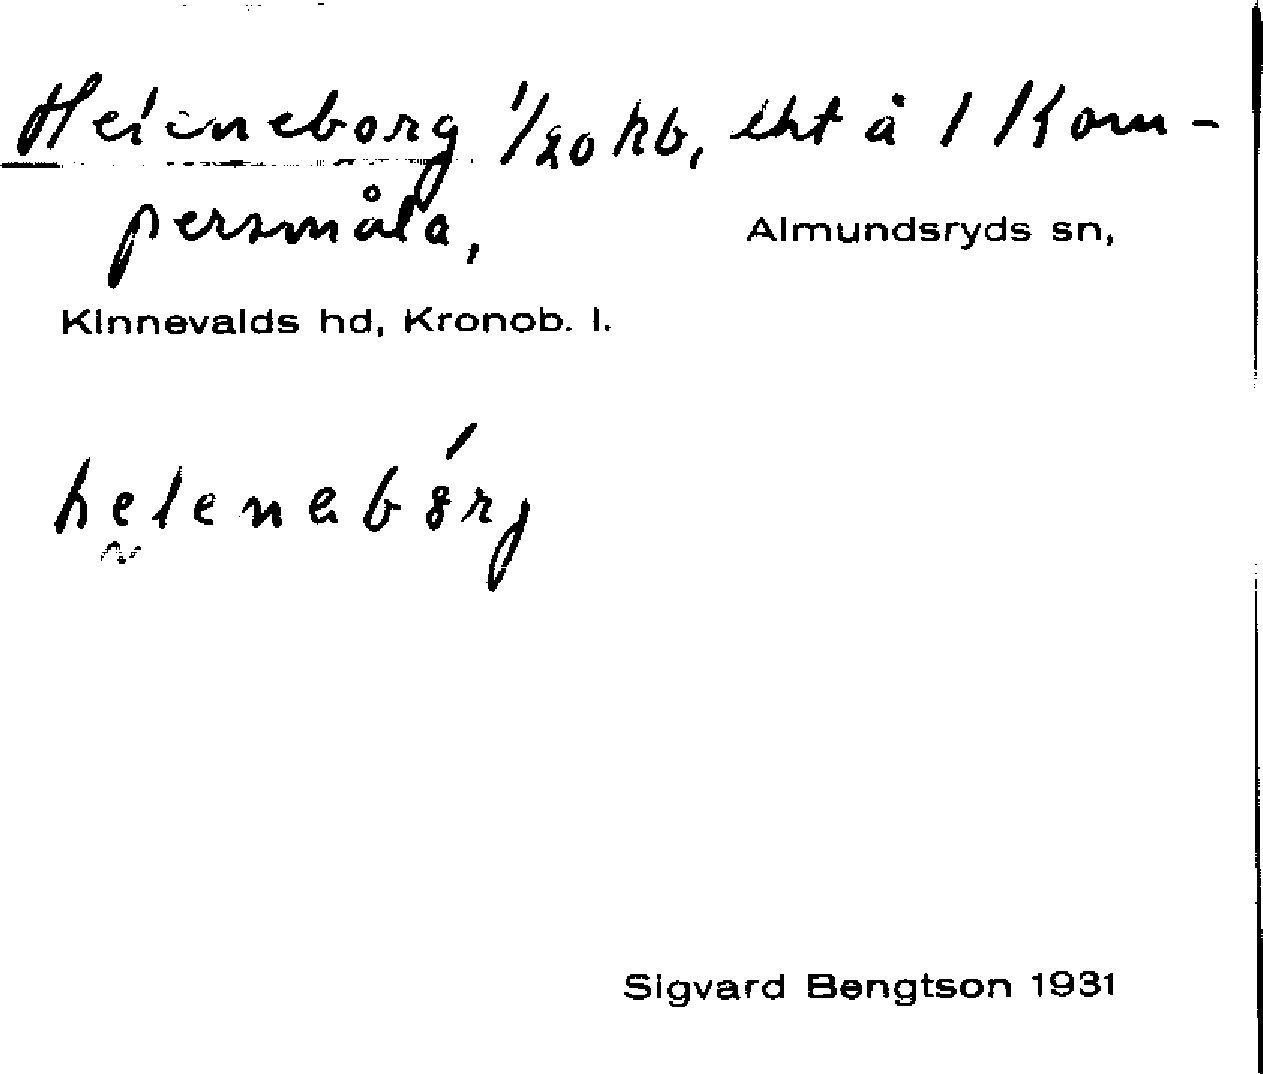 Heleneborg 1/20 hb, lht å 1 Kom-
persmåla, Almundsryds sn,
Kinnevalds hd, Kronob. l.
helenabórg
Sigvard Bengtson 1931